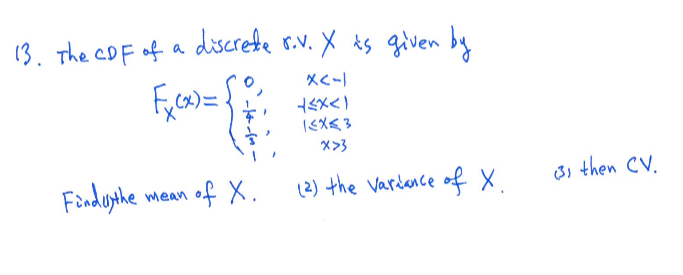 13. The CDF of a discrete r.v. X is given by
F_X(x) = { 0, x<-1
1/4, -1≤x<1
1/3, 1≤x≤3
1, x>3
Find (1) the mean of X. (2) the variance of X. (3) then CV.